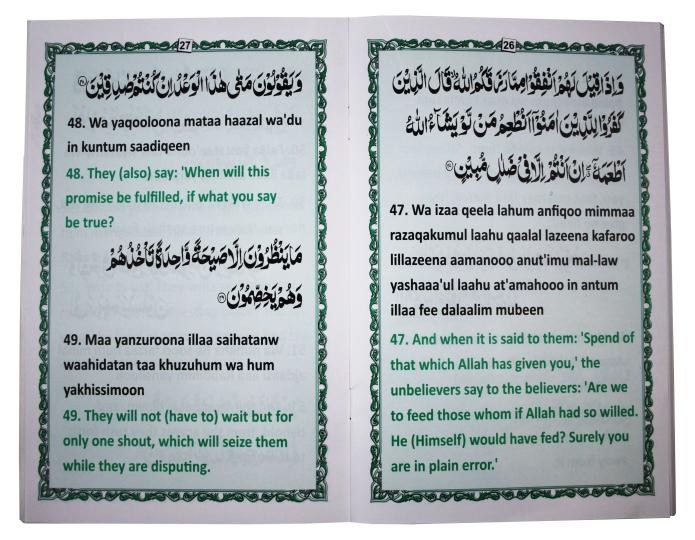 26
وَاِذَا قِيْلَ لَهُمْ اَنْفِقُوْا مِمَّا رَزَقَكُمُ اللّٰهُ ۙ قَالَ الَّذِيْنَ
كَفَرُوْا لِلَّذِيْنَ اٰمَنُوْٓا اَنُطْعِمُ مَنْ لَّوْ يَشَآءُ اللّٰهُ
اَطْعَمَهٗٓ ۖ اِنْ اَنْتُمْ اِلَّا فِيْ ضَلٰلٍ مُّبِيْنٍ ﴿٤٧﴾
47. Wa izaa qeela lahum anfiqoo mimmaa
razaqakumul laahu qaalal lazeena kafaroo
lillazeena aamanooo anut'imu mal-law
yashaaa'ul laahu at'amahooo in antum
illaa fee dalaalim mubeen
47. And when it is said to them: 'Spend of
that which Allah has given you,' the
unbelievers say to the believers: 'Are we
to feed those whom if Allah had so willed.
He (Himself) would have fed? Surely you
are in plain error.'
27
وَيَقُوْلُوْنَ مَتٰى هٰذَا الْوَعْدُ اِنْ كُنْتُمْ صٰدِقِيْنَ ﴿٤٨﴾
48. Wa yaqooloona mataa haazal wa'du
in kuntum saadiqeen
48. They (also) say: 'When will this
promise be fulfilled, if what you say
be true?
مَا يَنْظُرُوْنَ اِلَّا صَيْحَةً وَّاحِدَةً تَاْخُذُهُمْ
وَهُمْ يَخِصِّمُوْنَ ﴿٤٩﴾
49. Maa yanzuroona illaa saihatanw
waahidatan taa khuzuhum wa hum
yakhissimoon
49. They will not (have to) wait but for
only one shout, which will seize them
while they are disputing.